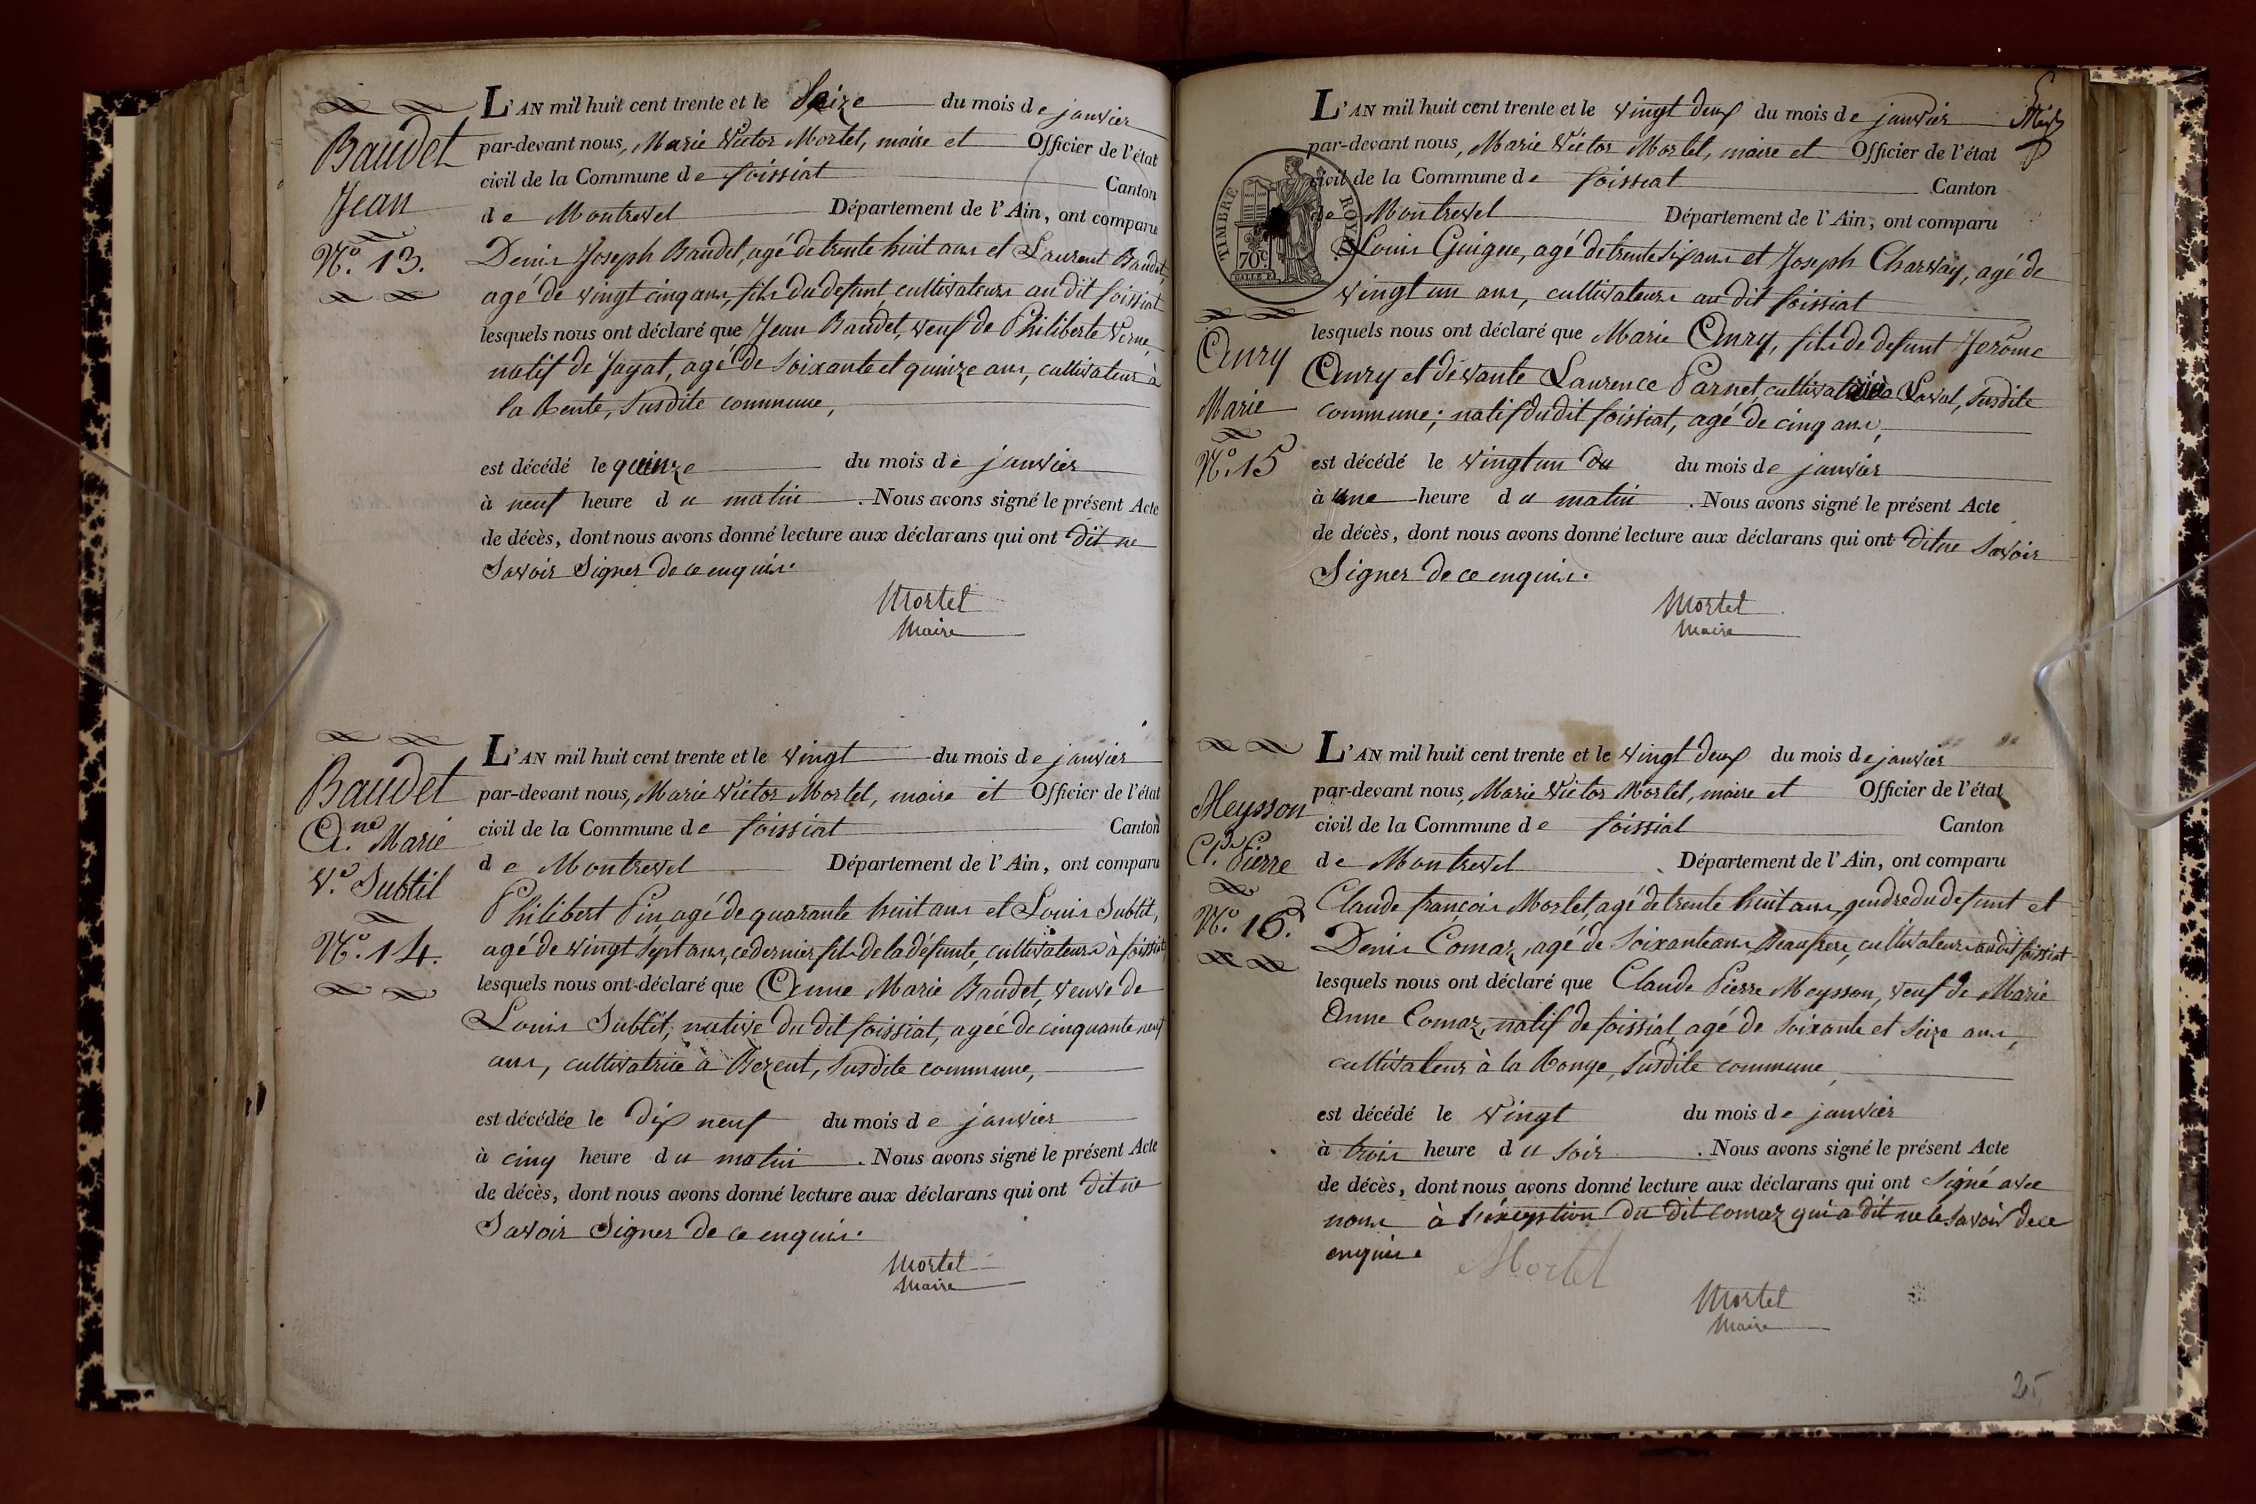 Baudet
Jean
N.º 13.
L'AN mil huit cent trente et le Seize du mois de janvier
par-devant nous, Marie Victor Mortel, maire et Officier de l'état
civil de la Commune de foissiat Canton
de Montrevel Département de l'Ain, ont comparu
Denis Joseph Baudet, agé de trente huit ans et Laurent Baudet,
agé de vingt cinq ans, fils du defunt, cultivateurs au dit foissiat
lesquels nous ont déclaré que Jean Baudet, veuf de Philiberte Verne,
natif de Jayat, agé de soixante et quinze ans, cultivateur à
la Bente, susdite commune,
est décédé le quinze du mois de janvier
à neuf heure du matin. Nous avons signé le présent Acte
de décès, dont nous avons donné lecture aux déclarans qui ont dit ne
Savoir Signer de ce enquis.
Mortel
Maire
Baudet
A.ne Marie
V.e Subtil
N.º 14.
L'AN mil huit cent trente et le vingt du mois de janvier
par-devant nous, Marie Victor Mortel, maire et Officier de l'état
civil de la Commune de foissiat Canton
de Montrevel Département de l'Ain, ont comparu
Philibert Pin, agé de quarante huit ans et Louis Subtil,
agé de vingt sept ans, ce dernier fils de la défunte, cultivateurs à foissiat
lesquels nous ont déclaré que Anne Marie Baudet, veuve de
Louis Subtil, native du dit foissiat, agée de cinquante neuf
ans, cultivatrice à Bezent, susdite commune,
est décédée le dix neuf du mois de janvier
à cinq heure du matin. Nous avons signé le présent Acte
de décès, dont nous avons donné lecture aux déclarans qui ont dit ne
Savoir Signer de ce enquis.
Mortel
Maire
TIMBRE ROYAL
70c
Cury
Marie
N.º 15
L'AN mil huit cent trente et le vingt deux du mois de janvier
par-devant nous, Marie Victor Mortel, maire et Officier de l'état
civil de la Commune de foissiat Canton
de Montrevel Département de l'Ain, ont comparu
Louis Guigue, agé de trente six ans et Joseph Charvay, agé de
vingt un ans, cultivateurs au dit foissiat
lesquels nous ont déclaré que Marie Cury, fils de defunt Jerôme
Cury et de vivante Laurence Parnet, à Laval, susdite
commune; natif du dit foissiat, agé de cinq ans,
est décédé le vingt un du du mois de janvier
à une heure du matin. Nous avons signé le présent Acte
de décès, dont nous avons donné lecture aux déclarans qui ont dit ne Savoir
Signer de ce enquis.
Mortel
Maire
Meysson
C.de Pierre
N.º 16.
L'AN mil huit cent trente et le vingt deux du mois de janvier
par-devant nous, Marie Victor Mortel, maire et Officier de l'état
civil de la Commune de foissiat Canton
de Montrevel Département de l'Ain, ont comparu
Claude françois Mortel, agé de trente huit ans, gendre du defunt et
Denis Comaz, agé de soixante ans Beaufrere, cultivateurs au dit foissiat
lesquels nous ont déclaré que Claude Pierre Meysson, veuf de Marie
Anne Comaz, natif de foissiat, agé de soixante et seize ans,
cultivateur à la Ronge, susdite commune,
est décédé le vingt du mois de janvier
à trois heure du soir. Nous avons signé le présent Acte
de décès, dont nous avons donné lecture aux déclarans qui ont signé avec
nous à l'exception du dit comaz qui a dit ne le savoir de ce
enquis.
Mortel
Mortel
Maire
25